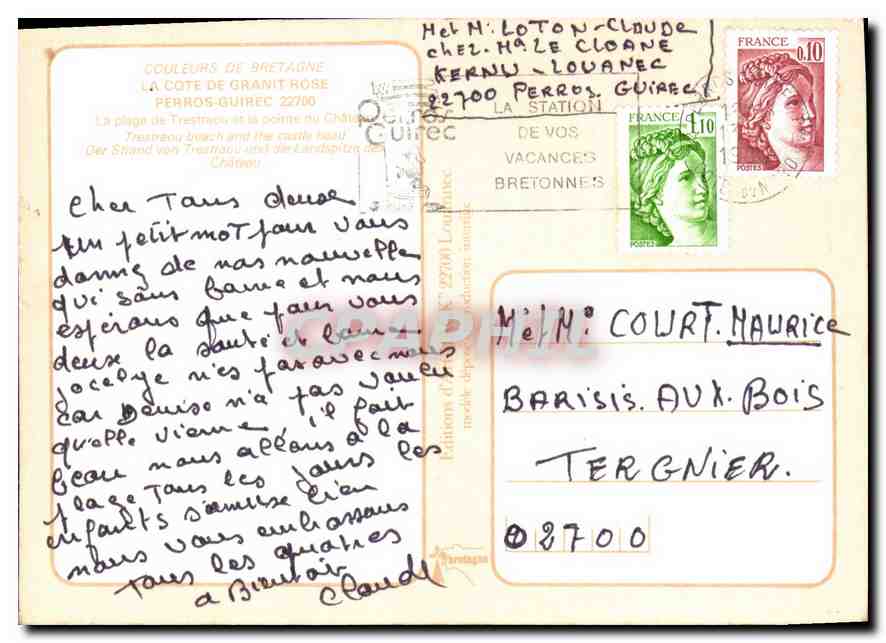 COULEURS DE BRETAGNE
LA COTE DE GRANIT ROSE
PERROS-GUIREC 22700
La plage de Trestraou et la pointe du Château
Trestraou beach and the castle head
Der Strand von Trestraou und die Landspitze des
Château
Cher Tous deuse
Un petit mot pour vous
danné de nos nouvelle
qui sans bonne et nous
espérons que pour vous
deux la santé et bonne
jocelyne n'es pas avec nous
car Denise n'a pas voulu
qu'elle vienne, il fait
beau nous allons à la
plage tous les jours les
enfants s'amuse bien
nous vous embrassons
Tous les quatres
a Bientôt
Claude
Met Mᵉ LOTON-CLAUDE
CHEZ. Mᵉ LE CLOANE
KERNU-LOUANEC
22700 PERROS. GUIREC
Perros
Guirec
LA STATION
DE VOS
VACANCES
BRETONNES
FRANCE
0,10
POSTES
FRANCE
1,10
POSTES
Editions d'Art 22700 Louannec
modèle déposé reproduction interdite
CPAPHIL
bretagne
Met Mᵉ COURT. MAURICE
BARISIS. AUX. BOIS
TERGNIER.
02700